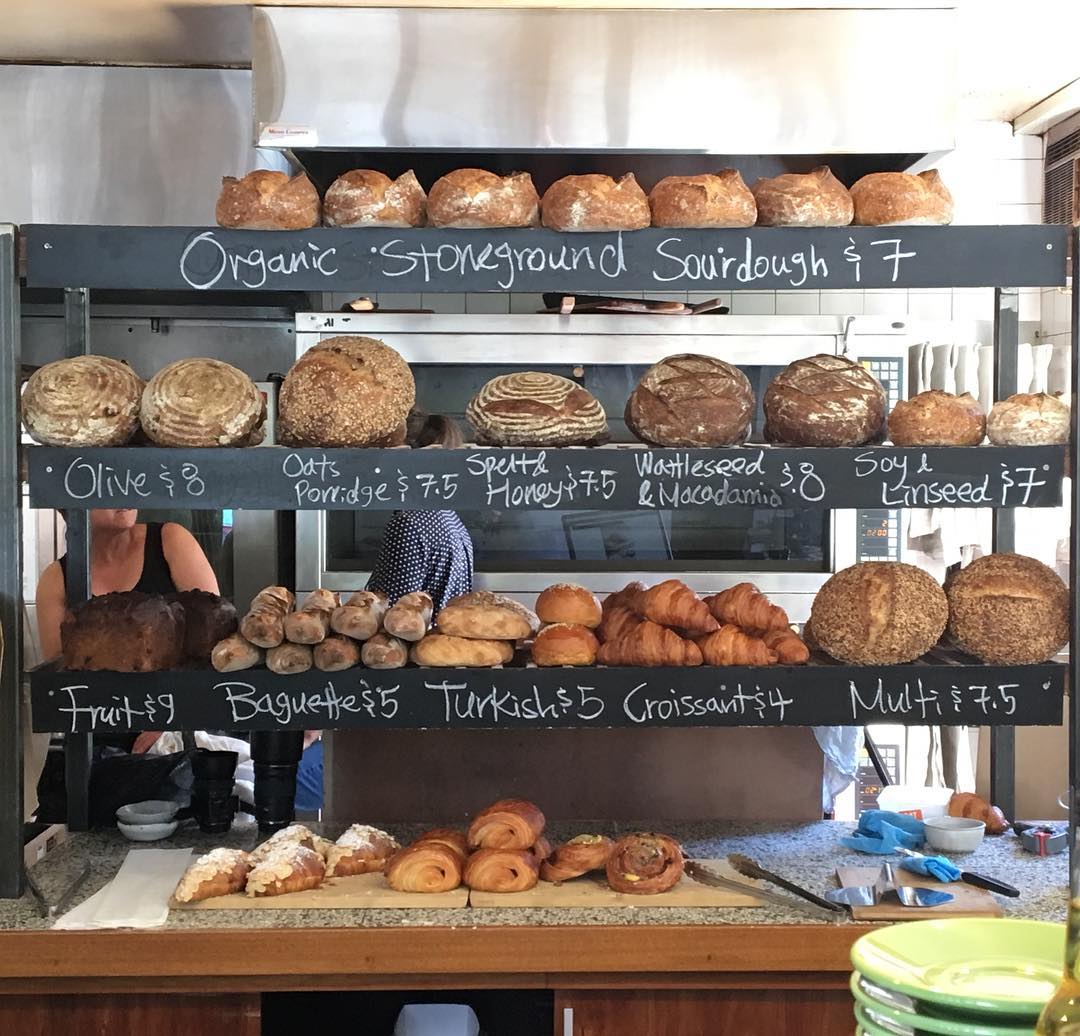 Organic Stoneground Sourdough $7
Olive $8
Oats
Porridge $7.5
Spelt &
Honey $7.5
Wattleseed
& Macadamia $8
Soy &
Linseed $7
Fruit $9
Baguette $5
Turkish $5
Croissant $4
Multi $7.5